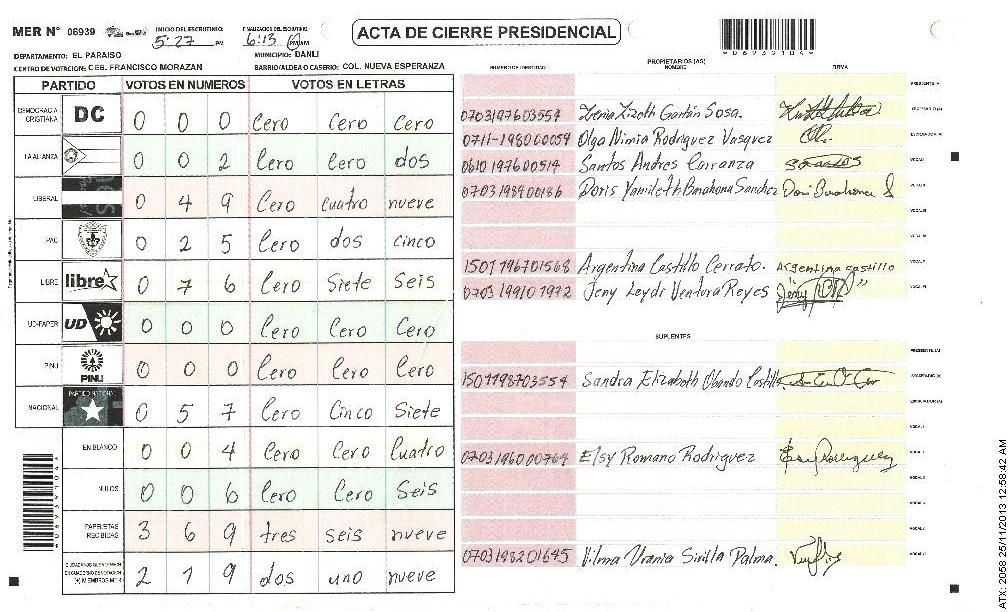 MER N° 06939
INICIO DEL ESCRUTINIO: 5:27 PM
FINALIZACION DEL ESCRUTINIO: 6:13 PM AM
ACTA DE CIERRE PRESIDENCIAL
DEPARTAMENTO: EL PARAISO
MUNICIPIO: DANLI
CENTRO DE VOTACION: CEB. FRANCISCO MORAZAN
BARRIO/ALDEA O CASERIO: COL. NUEVA ESPERANZA
PARTIDO VOTOS EN NUMEROS VOTOS EN LETRAS
DEMOCRACIA CRISTIANA DC 0 0 0 Cero Cero Cero
LA ALIANZA 0 0 2 Cero Cero dos
LIBERAL 0 4 9 Cero Cuatro nueve
PAC 0 2 5 Cero dos cinco
LIBRE libre 0 7 6 Cero Siete Seis
UD-FAPER UD 0 0 0 Cero Cero Cero
PINU PINU 0 0 0 Cero Cero Cero
NACIONAL PARTIDO NACIONAL 0 5 7 Cero Cinco Siete
EN BLANCO 0 0 4 Cero Cero Cuatro
NULOS 0 0 6 Cero Cero Seis
PAPELETAS RECIBIDAS 3 6 9 tres seis nueve
2 1 9 dos uno nueve
06939104
PROPIETARIOS (AS)
NUMERO DE IDENTIDAD NOMBRE FIRMA
PRESIDENTE (A)
0703197603554 Sosa. SECRETARIO (A)
0711-198000059 Olga Nimia Rodriguez Vasquez ESCRUTADOR (A)
0610 197600514 Santos Andres Carranza VOCAL I
0703198900186 Doris Yamileth Barahona Sanchez Doris Barahona S VOCAL II
VOCAL III
VOCAL IV
1501196701568 Argentina Castillo Cerrato. Argentina castillo VOCAL V
0703 199101972 Jeny Leydi Ventura Reyes Jeny VOCAL VI
SUPLENTES
PRESIDENTE (A)
1501198703554 Sandra Elizabeth Obando Castillo SECRETARIO (A)
ESCRUTADOR (A)
VOCAL I
0703196000764 Elsy Romano Rodriguez Elsy Rodriguez
VOCAL V
0703198201645 Vilma Urania Sivilla Palma. VOCAL VI
ATX: 2058 25/11/2013 12:58:42 AM